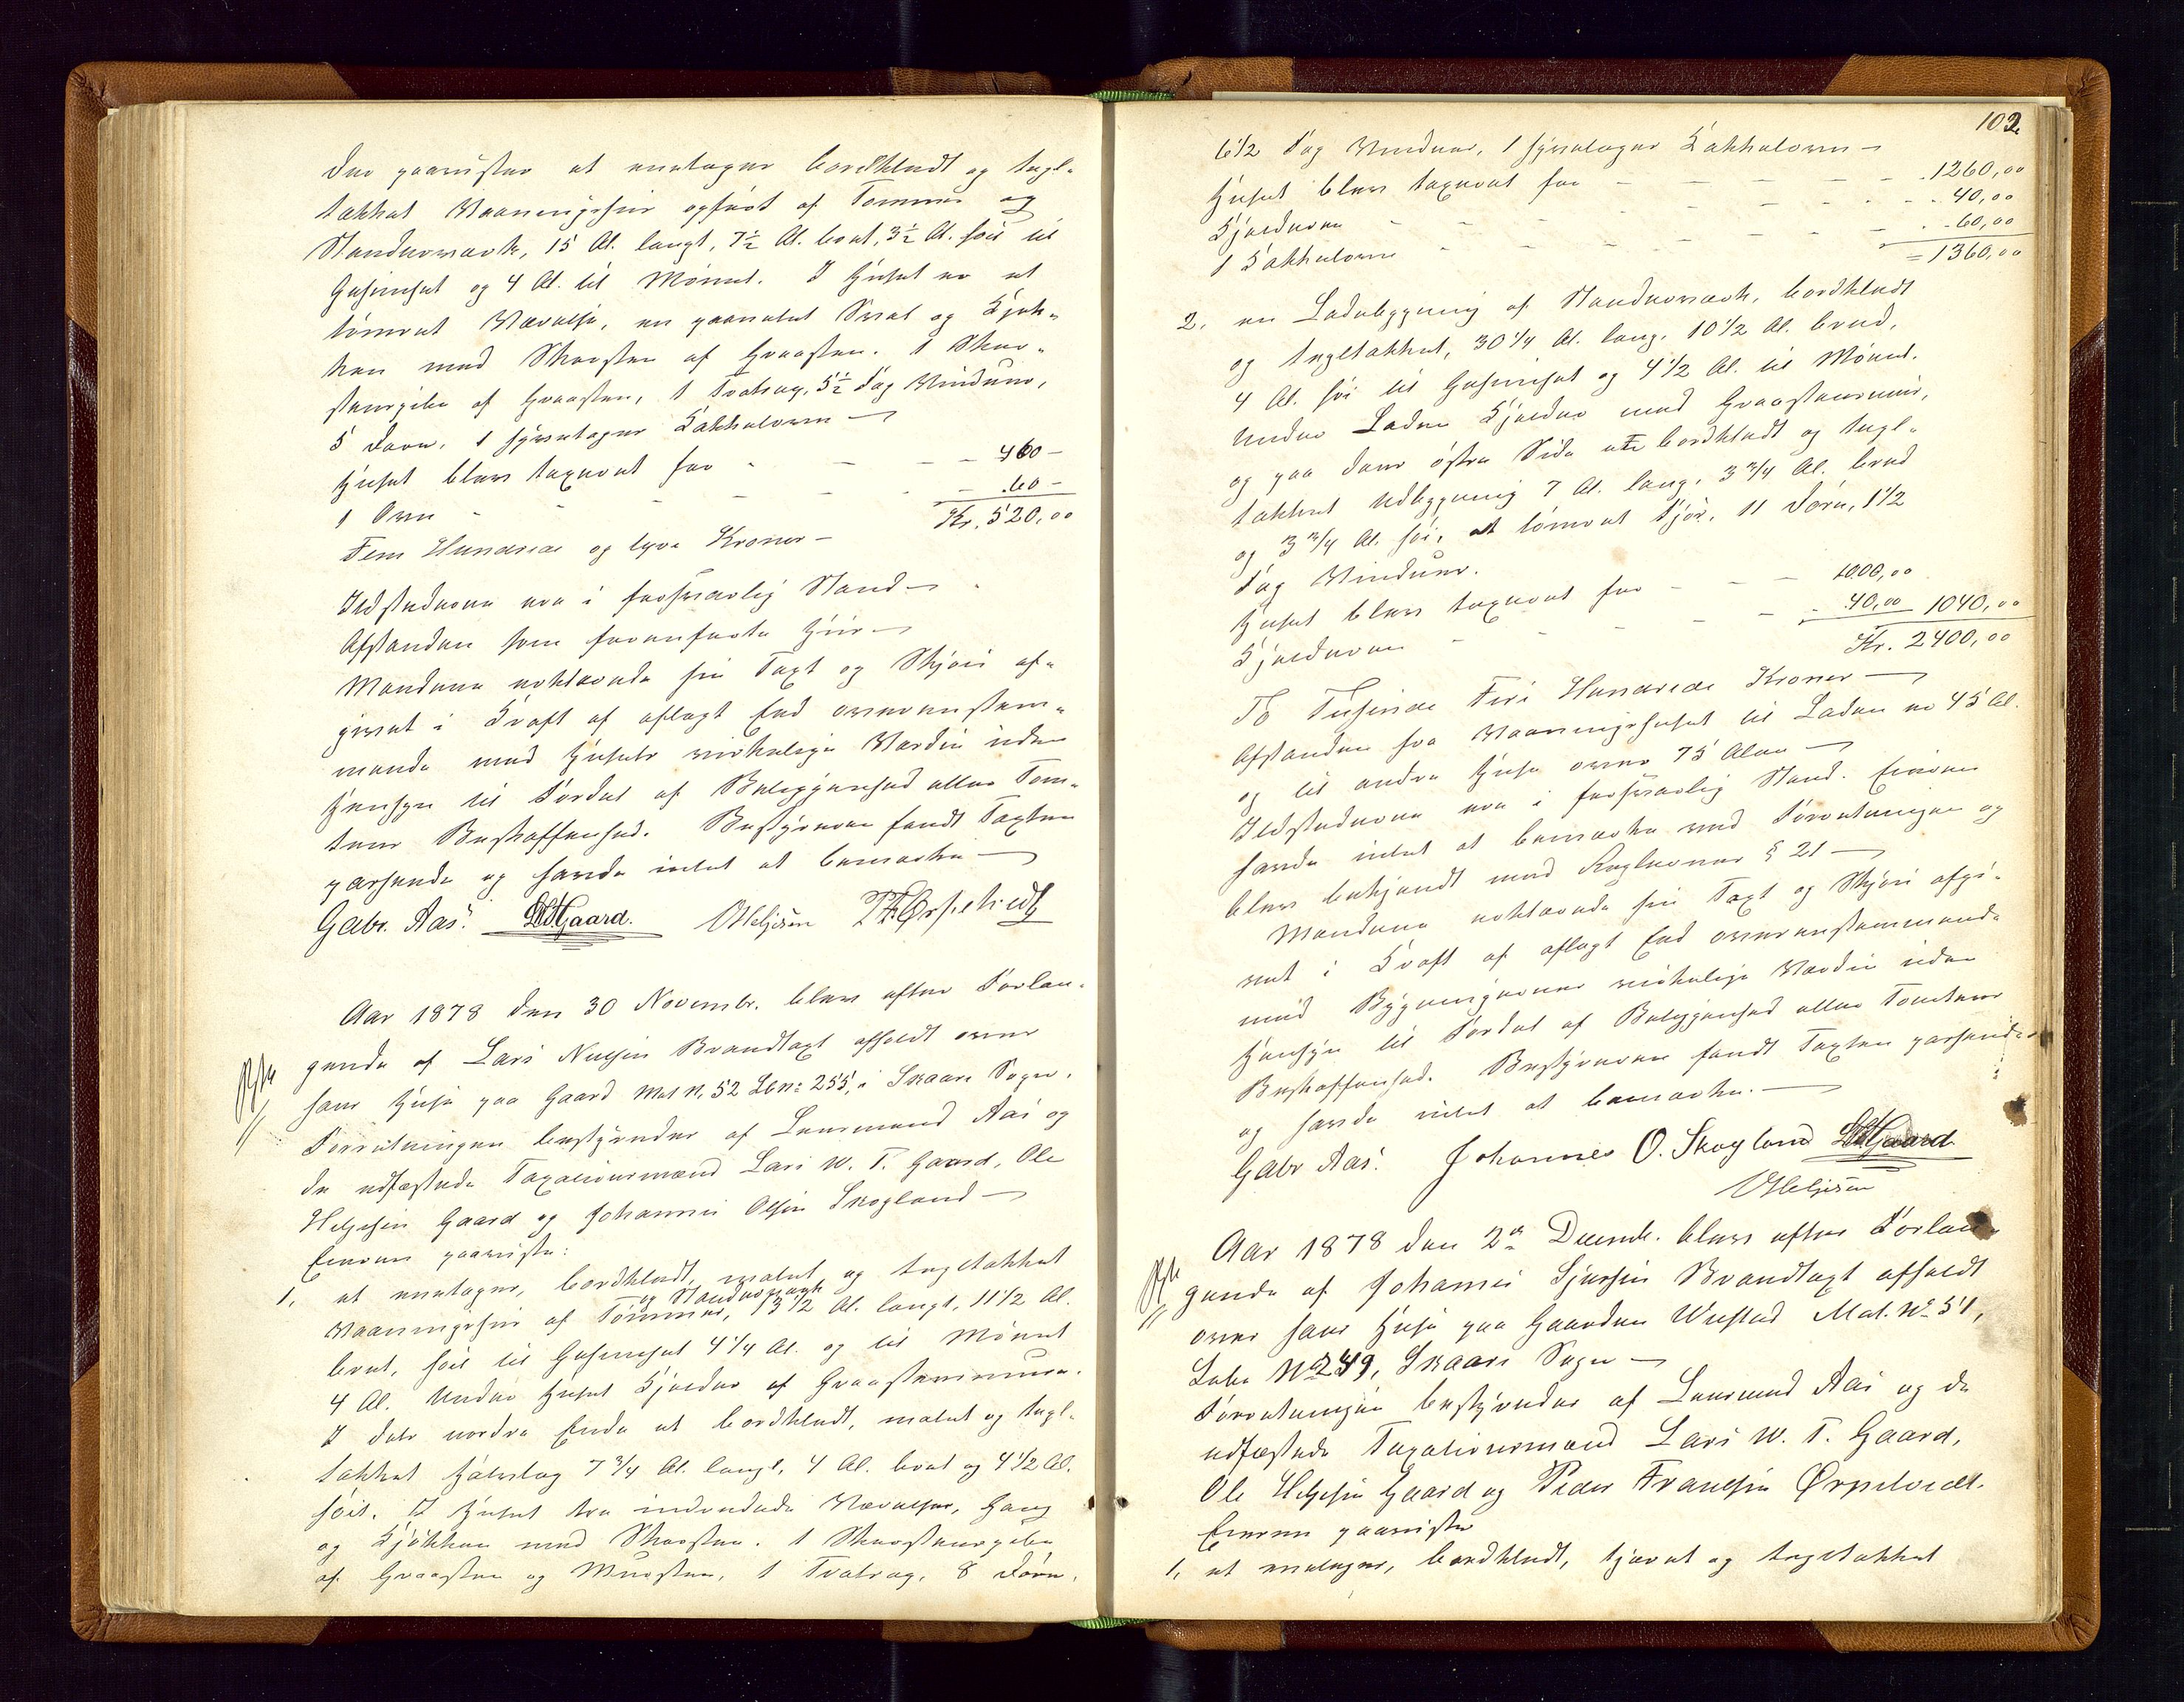 der paavistes et eenetages bordklædt og tægl-
tækket Vaaningshus opført af Tømmer og
Stenderværk, 15 Al. langt, 7½ Al. bredt, 3½ Al. høit til
Gesimset og 4 Al. til Mønnet. I Huset er et
tømret Værelse, en paneelet Sval og Kjøk-
ken med Skorsten af Graasten. 1 Skor-
stenspibe af Graasten, 1 Trætrap, 5½ Fag Vinduer,
5 Døre, 1 hyretages Kakkelovn —
Huset blev taxeret for - — — — 460 —
1 Ovn - - - - — 60 —
Kr. 520,00
Fem Hundrede og tyve Kroner —
Ildstederne ere i forsvarlig Stand —
Afstanden som foranførte Huus —
Mændene erklærede sin Taxt og Skjøn af-
givet i Kraft af aflagt Eed overensstem-
mende med Husets virkelige Værdie uden
Hensyn til Fordel af Beliggenhed eller Tom-
tens Beskaffenhed. Bestyreren fandt Taxten
passende og havde intet at bemærke —
Gabr. Aas. LWTGaard. OHeljesen PFØrpetvedt
Aar 1878 den 30 Novembr. blev efter Forlan-
gende af Lars Nielsen Brandtaxt afholdt over
hans Huse paa Gaard Mat N. 52 Lbn: 255, i Skaare Sogn.
Forretningen bestyredes af Lensmand Aas og
de udfæstede Taxationsmænd Lars W. T. Gaard, Ole
Heljesen Gaard og Johannes Olsen Skogland —
Eieren paaviste:
1, et eenetages, bordklædt, malet og tægltækket
og Stenderværk
Vaaningshus af Tømmer, 13½ Al. langt, 11½ Al.
bredt, høit til Gesimset 4¼ Al. og til Mønnet
4 Al. Under Huset Kjelder af Graastensmure.
I dets nordre Ende et bordklædt, malet og tægl-
tækket Halvtag 7¾ Al. langt, 4 Al. bredt og 4½ Al.
høit. I Huset tre indredede Værelser, Gang
og Kjøkken med Skorsten. 1 Skorstenspibe
af Graasten og Mursten, 1 Trætrap, 8 Døre,
102
6½ Fag Vinduer, 1 hyretages Kakkelovn —
Huset blev taxeret for — — — — — 1260,00
Kjelderen - - - - - 40,00
1 Kakkelovn - - - - 60,00
= 1360,00
2, en Ladebygning af Stenderværk, bordklædt
og tægltækket, 30¼ Al. lang, 10½ Al. bred,
4 Al. høi til Gesimset og 4½ Al. til Mønnet.
Under Laden Kjelder med Graastensmure,
og paa dens østre Side en bordklædt og tægl-
tækket Udbygning 7 Al. lang, 3¾ Al. bred
og 3¾ Al. høi, et tømret Fjøs, 11 Døre, 1½
Fag Vinduer.
Huset blev taxeret for — — — 1000,00
Kjelderen - - - - 40,00 1040,00
Kr. 2400,00
To Tusinde Fire Hundrede Kroner —
Afstanden fra Vaaningshuset til Laden er 45 Al.
og til andre Huse over 75 Alen —
Ildstederne ere i forsvarlig Stand. Eieren
havde intet at bemærke ved Forretningen og
blev bekjendt med Reglernes § 21 —
Mændene erklærede sin Taxt og Skjøn afgi-
vet i Kraft af aflagt Eed overensstemmende
med Bygningernes virkelige Værdie uden
Hensyn til Fordel af Beliggenhed eller Tomtens
Beskaffenhed. Bestyreren fandt Taxten passende
og havde intet at bemærke. —
Gabr Aas. Johannes O. Skogland LWTGaard
OHeljesen
Aar 1878 den 2den Decemb. blev efter Forlan-
gende af Johannes Sjursen Brandtaxt afholdt
over hans Huse paa Gaarden Mat. No 51,
Løbe No 249, Skaare Sogn —
Forretningen bestyredes af Lensmand Aas og de
udfæstede Taxationsmænd Lars W. T. Gaard,
Ole Heljesen Gaard og Peder Frandsen Ørpetvedt.
Eieren paaviste
1, et eenetages, bordklædt, tjæret og tægltækket